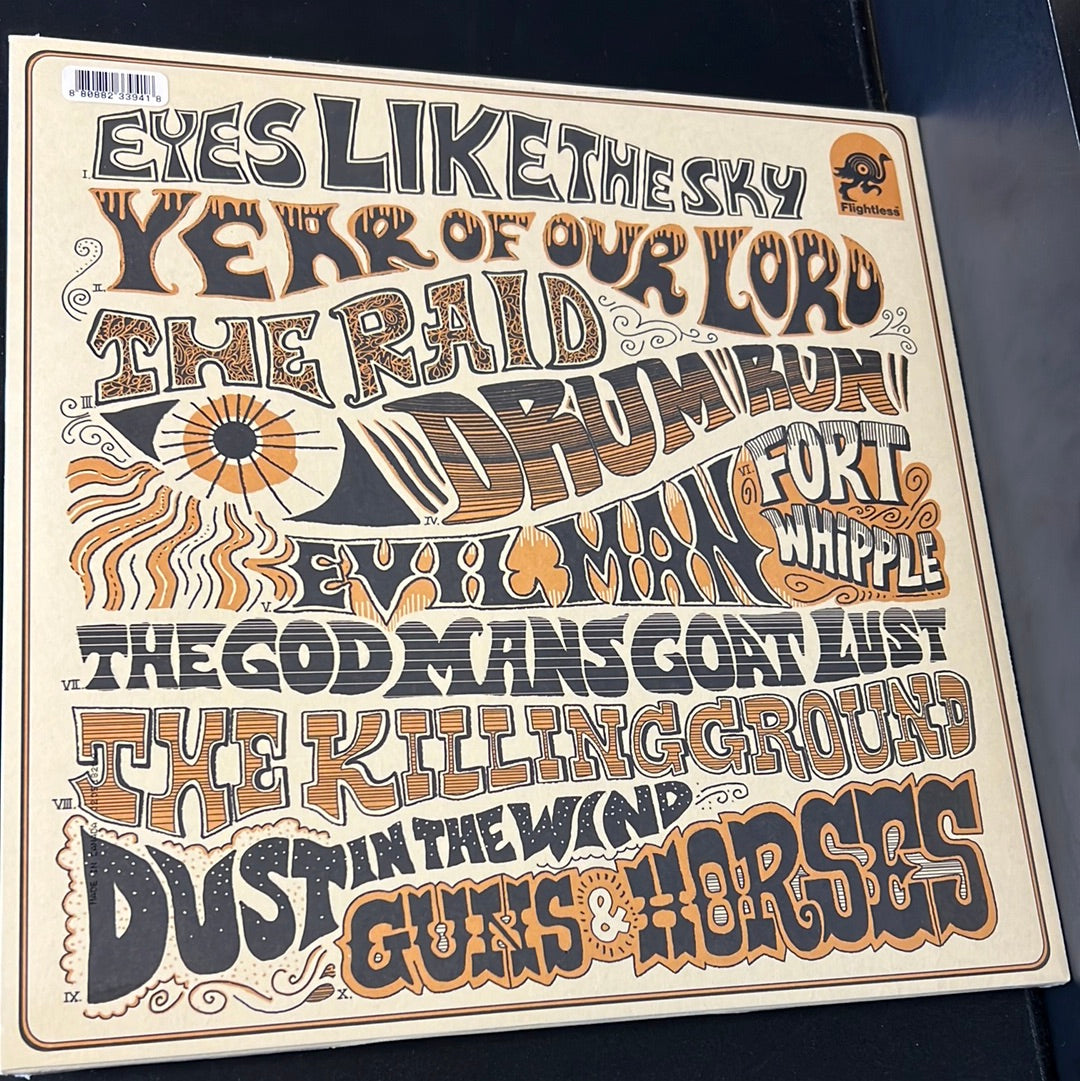 8 80882 33941 8
I. EYES LIKE THE SKY
Flightless
II. YEAR OF OUR LORD
III. THE RAID
IV. DRUM RUN
V. EVIL MAN
VI. FORT
WHiPPLE
VII. THE GOD MANS GOAT LUST
VIII. THE KILLING GROUND
IX. DUST IN THE WIND
X. GUNS & HORSES
MADE IN CANADA